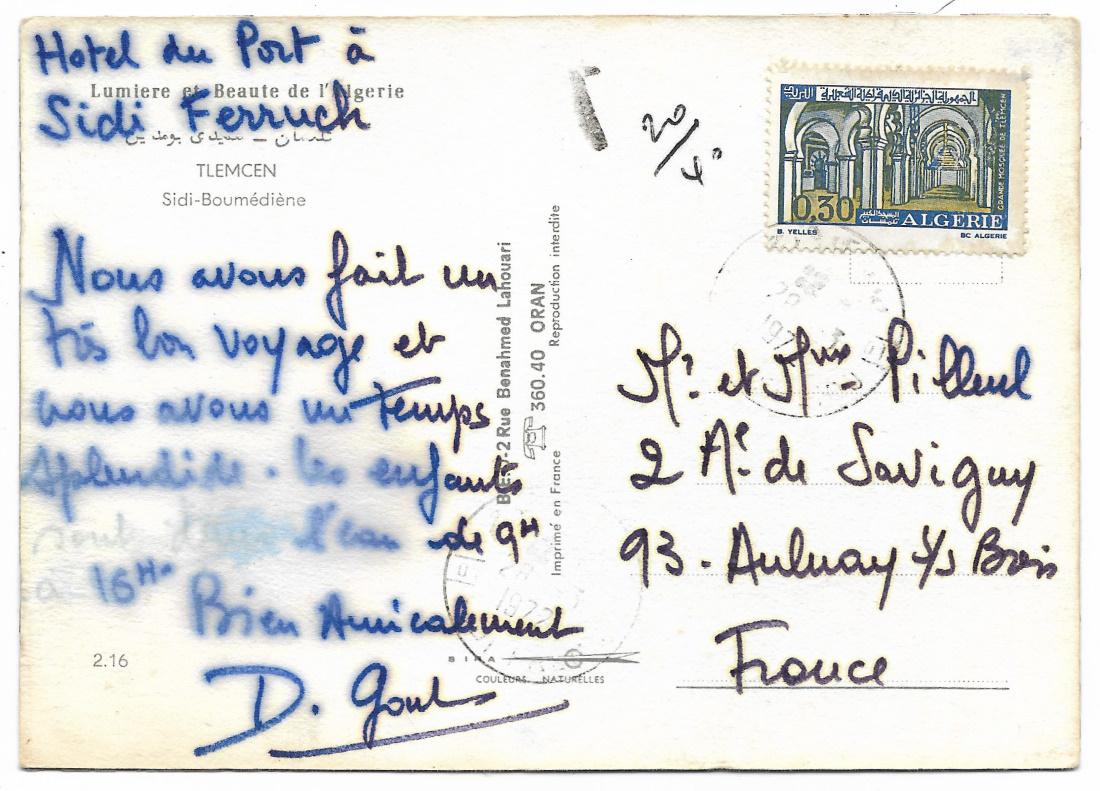 Hotel du Port à
Lumiere et Beaute de l'Algerie
Sidi Ferruch
تلمسان _ سيدي بومدين
TLEMCEN
Sidi-Boumédiène
Nous avons fait un
très bon voyage et
nous avons un temps
splendide. Les enfants
sont dans l'eau de 9H
a 16H.
Bien Amicalement
D. Gout
2.16
2 Rue Benahmed Lahouari
360.40 ORAN
Reproduction interdite
Imprimé en France
COULEURS NATURELLES
20/40
T
الجمهورية الجزائرية الديمقراطية الشعبية
البريد
GRANDE MOSQUEE DE TLEMCEN
0,30
المسجد الكبير
تلمسان
ALGERIE
B. YELLES
BC ALGERIE
1972
1972
Mr. et Mme Pilleul
2 Ae. de Savigny
93. Aulnay s/s Bois
France